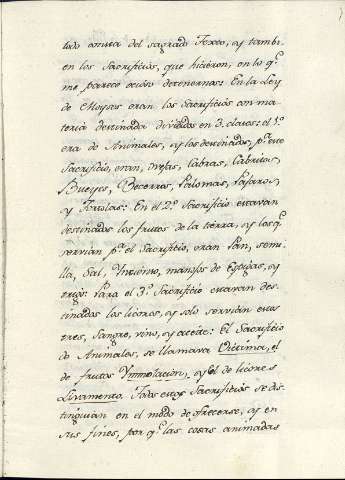 todo consta del sagrado Texto, y tambi-
en los Sacrificios, que hicieron, en lo q.e
me parece ocioso detenernos: En la Ley
de Moyses eran los Sacrificios con ma-
teria destinada divididos en 3. clases: el 1.o
era de Animales, y los destinados, p.a este
Sacrificio, eran, ovejas, Cabras, Cabritos,
Bueyes, Becerros, Palomas, Pajaros,
y Tortolas: En el 2.o Sacrificio estavan
destinados los frutos de la tierra, y los q.e
servian p.a el Sacrificio, eran Pan, semi-
lla, Sal, Yncienso, manojos de Espigas, y
trigo: Para el 3.o Sacrificio estavan des-
tinados los licores, y solo servian estos
tres, Sangre, vino, y aceite: El Sacrificio
de Animales, se llamava Victima, el
de frutos Ynmolacion, y el de licores
Livamento. Todos estos Sacrificios se dis-
tinguian en el modo de ofrecerse, y en
sus fines, por q.e las cosas animadas